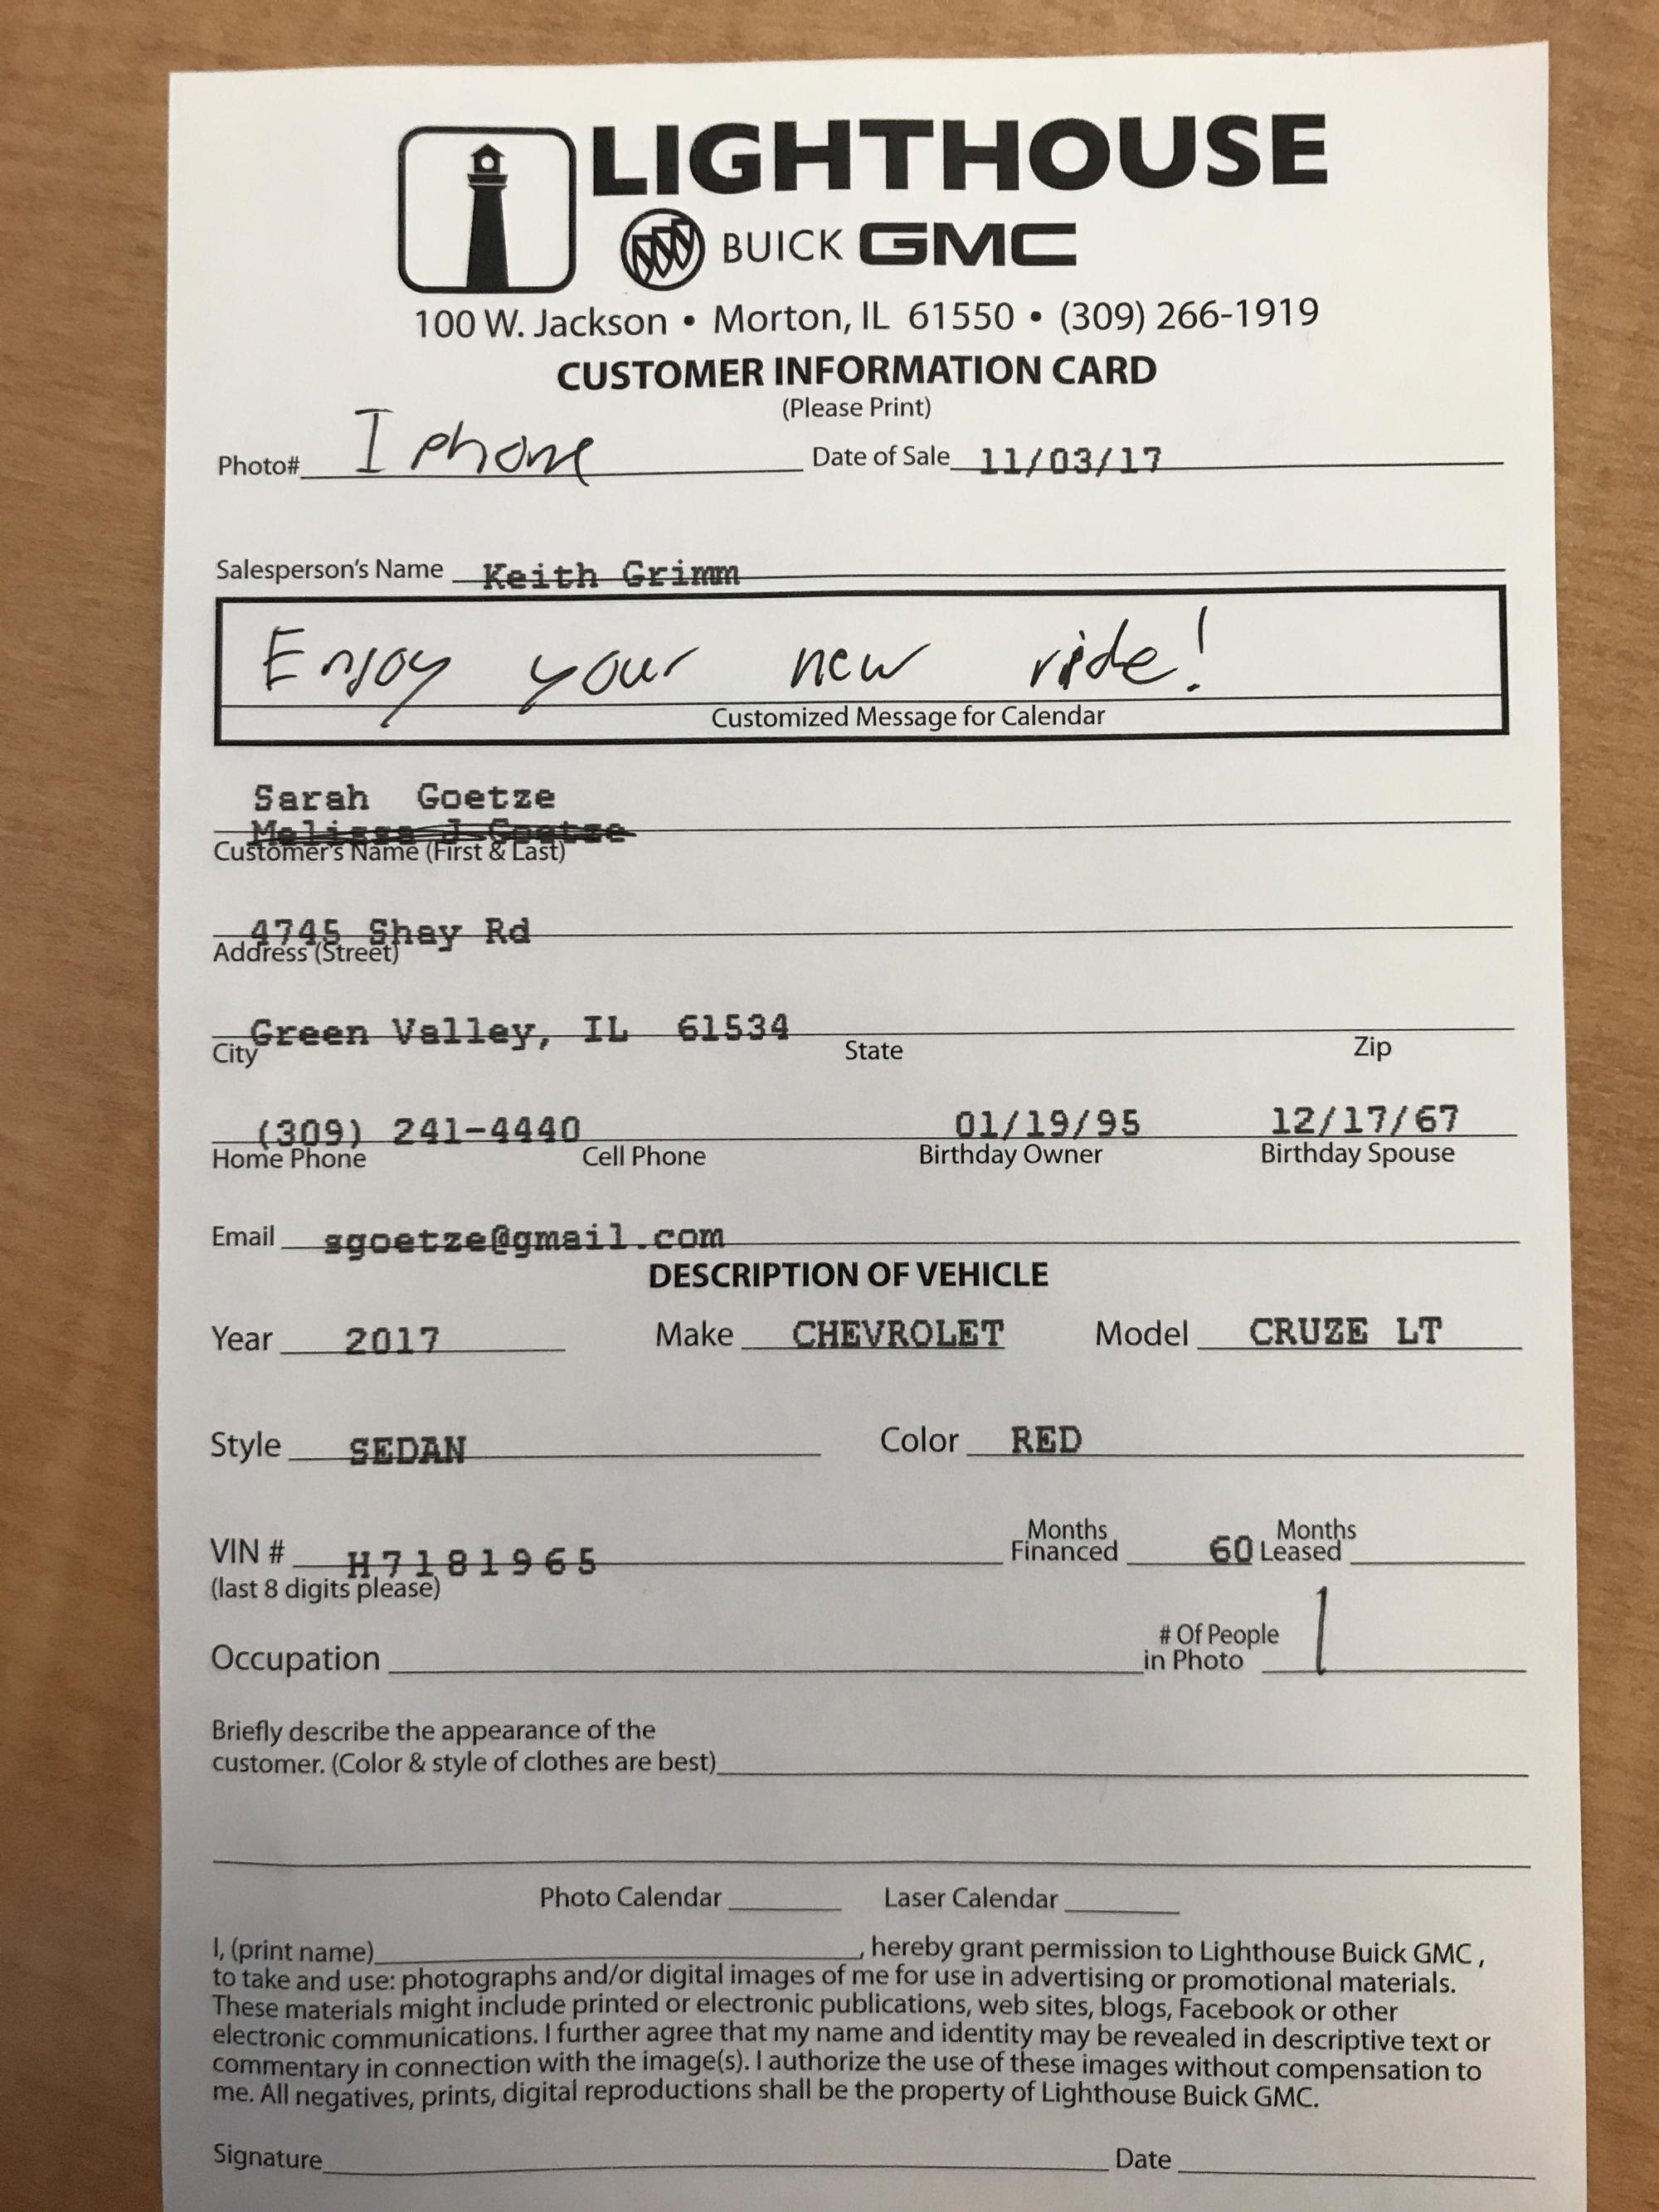 LIGHTHOUSE
BUICK GMC
100 W. Jackson • Morton, IL 61550 • (309) 266-1919
CUSTOMER INFORMATION CARD
(Please Print)
Photo# I phone Date of Sale 11/03/17
Salesperson's Name Keith Grimm
Enjoy your new ride!
Customized Message for Calendar
Sarah Goetze
Melissa J Goetze
Customer's Name (First & Last)
4745 Shay Rd
Address (Street)
Green Valley, IL 61534
City State Zip
(309) 241-4440 01/19/95 12/17/67
Home Phone Cell Phone Birthday Owner Birthday Spouse
Email sgoetze@gmail.com
DESCRIPTION OF VEHICLE
Year 2017 Make CHEVROLET Model CRUZE LT
Style SEDAN Color RED
VIN # H7181965 Months Financed 60 Months Leased
(last 8 digits please)
Occupation # Of People in Photo 1
Briefly describe the appearance of the
customer. (Color & style of clothes are best)
Photo Calendar Laser Calendar
I, (print name) , hereby grant permission to Lighthouse Buick GMC ,
to take and use: photographs and/or digital images of me for use in advertising or promotional materials.
These materials might include printed or electronic publications, web sites, blogs, Facebook or other
electronic communications. I further agree that my name and identity may be revealed in descriptive text or
commentary in connection with the image(s). I authorize the use of these images without compensation to
me. All negatives, prints, digital reproductions shall be the property of Lighthouse Buick GMC.
Signature Date